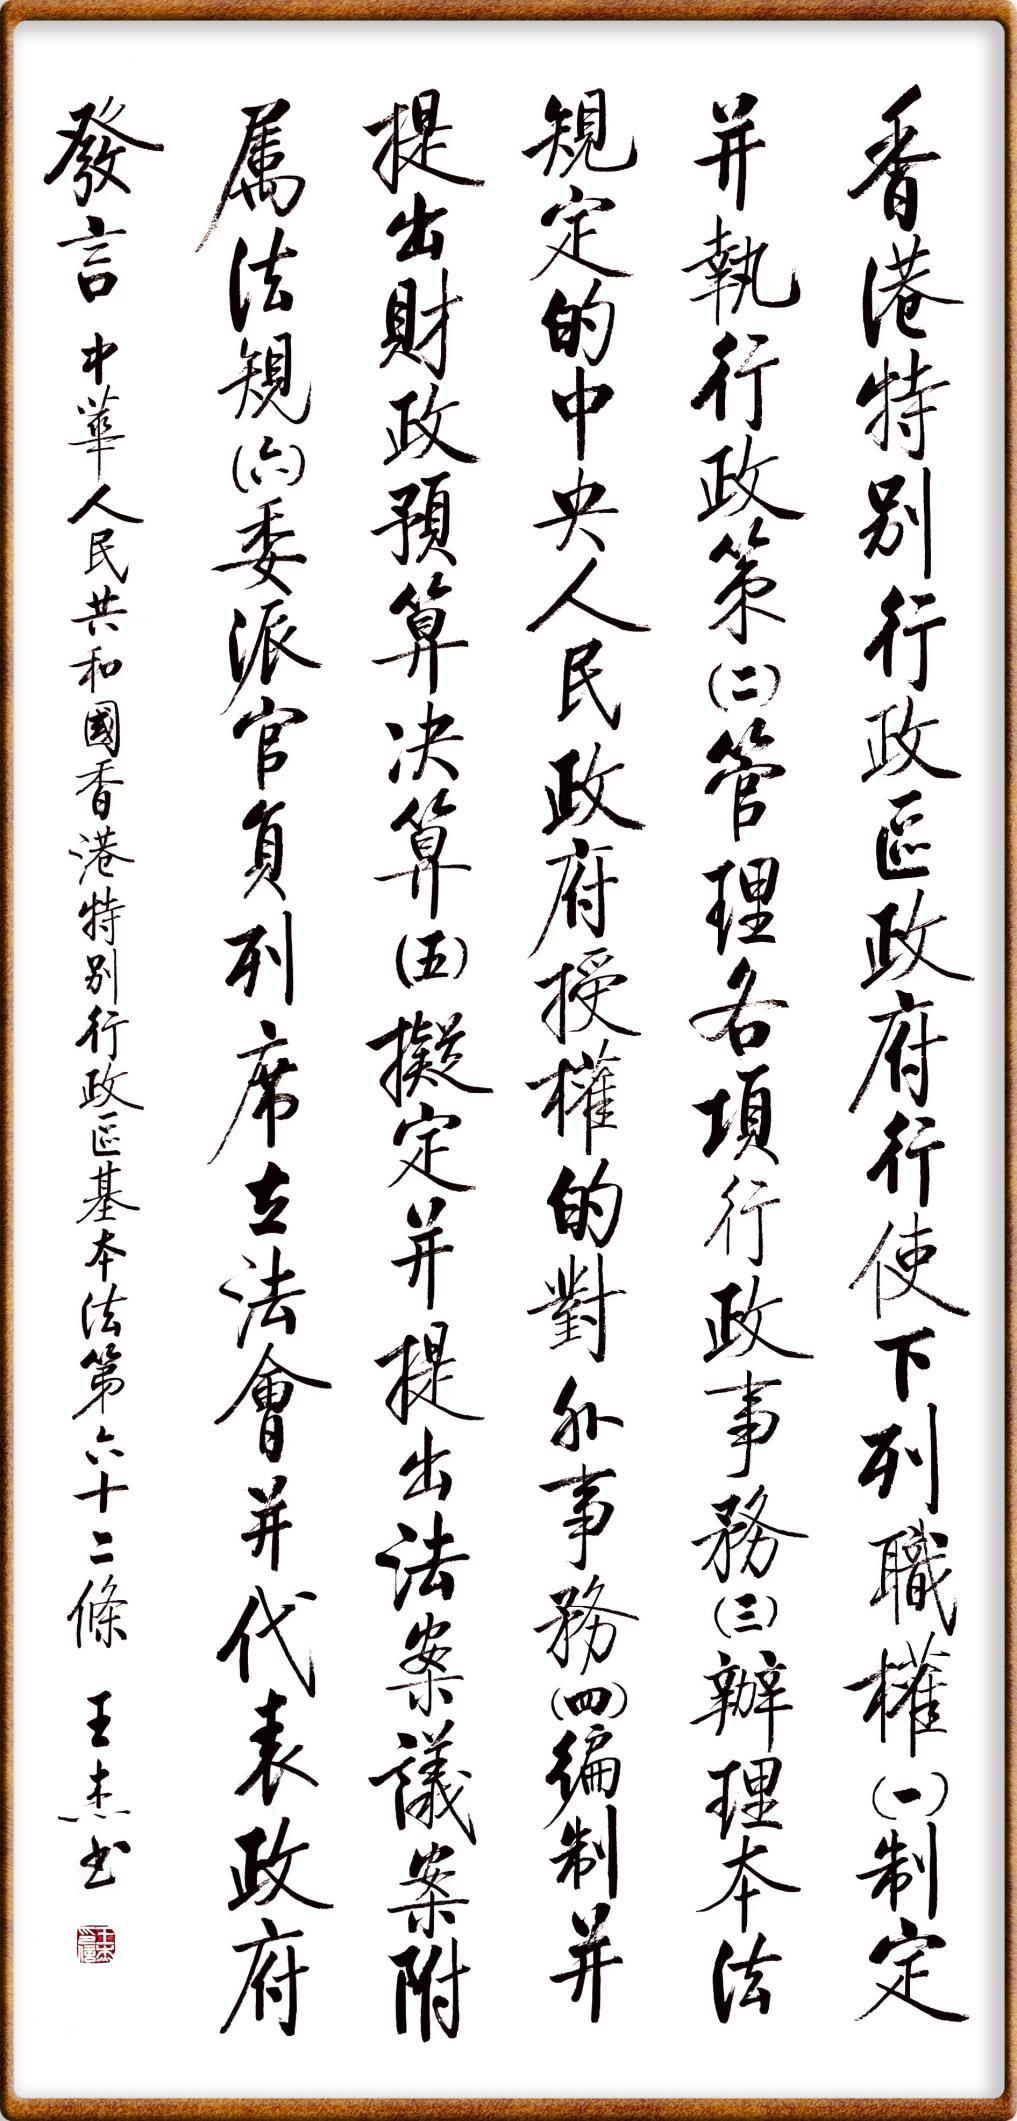 香港特别行政區政府行使下列職權(一)制定
并執行政策(二)管理各項行政事務(三)辦理本法
規定的中央人民政府授權的對外事務(四)編制并
提出財政預算决算(五)擬定并提出法案議案附
属法規(六)委派官負列席立法會并代表政府
發言 中華人民共和國香港特别行政區基本法第六十二條 王杰书
王杰印信